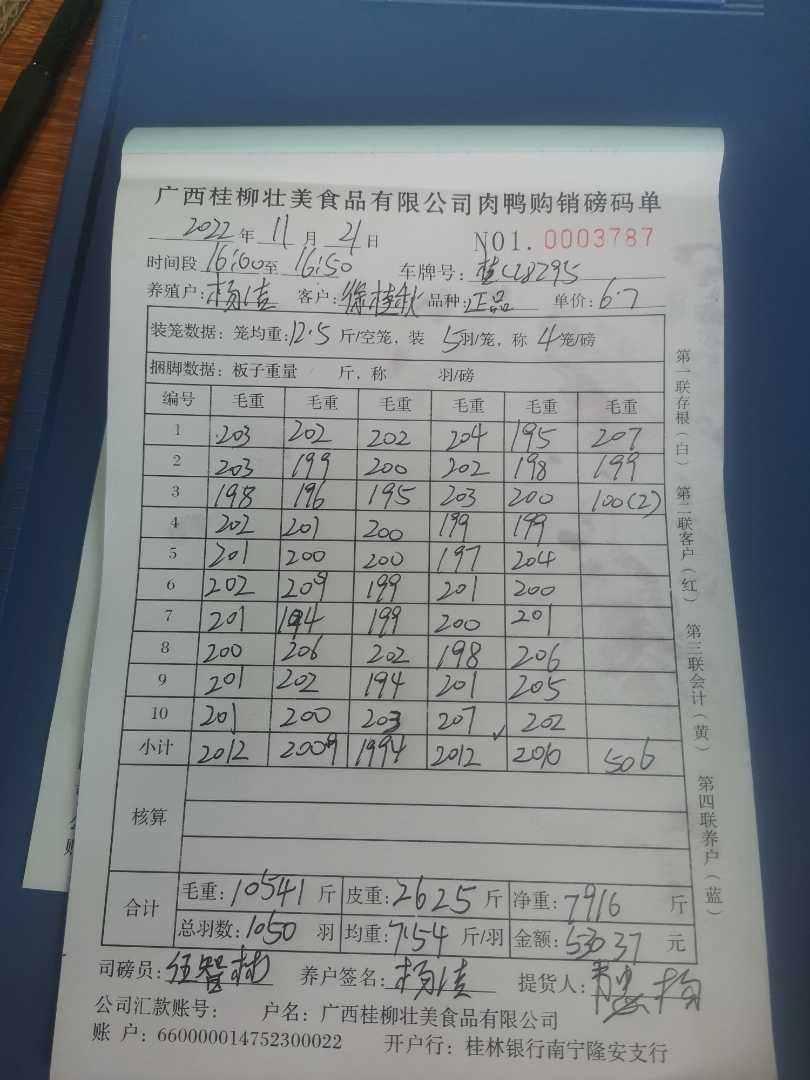 广西桂柳壮美食品有限公司肉鸭购销磅码单
2022年 11月 21日 NO1. 0003787
时间段 16:00至 16:50 车牌号: 桂C28295
养殖户: 杨洁 客户: 徐桂秋 品种: 正品 单价: 6.7
装笼数据: 笼均重: 12.5 斤/空笼, 装 5羽/笼, 称 4笼/磅
捆脚数据: 板子重量 斤, 称 羽/磅
编号 毛重 毛重 毛重 毛重 毛重 毛重
1 203 202 202 204 195 207
2 203 199 200 202 198 199
3 198 196 195 203 200 100(2)
4 202 201 200 199 199
5 201 200 200 197 204
6 202 209 199 201 200
7 201 194 199 200 201
8 200 206 202 198 206
9 201 202 194 201 205
10 201 200 203 207 202
小计 2012 2009 1994 2012 2010 506
核算
合计
毛重: 10541 斤 皮重: 2625 斤 净重: 7916 斤
总羽数: 1050 羽 均重: 7.54 斤/羽 金额: 53037 元
司磅员: 养户签名: 杨洁 提货人:
公司汇款账号: 户名: 广西桂柳壮美食品有限公司
账 户: 660000014752300022 开户行: 桂林银行南宁隆安支行
第一联存根(白) 第二联客户(红) 第三联会计(黄) 第四联养户(蓝)